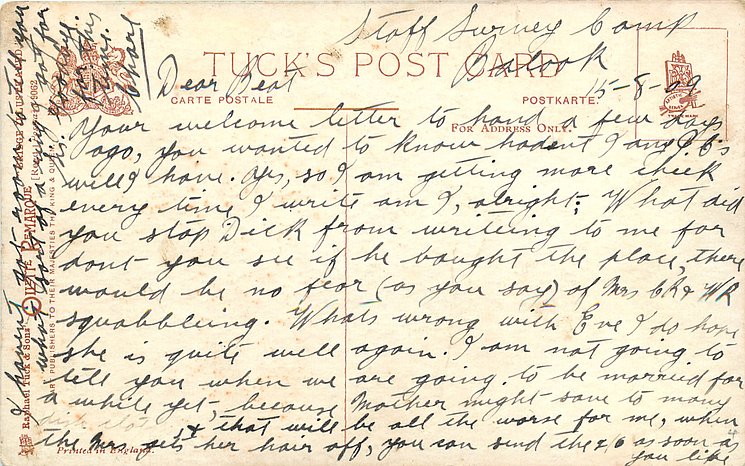 Staff Survey Camp
Balook
15-8-09
TUCK'S POST CARD
CARTE POSTALE
POSTKARTE.
FOR ADDRESS ONLY.
Dear Beat
Your welcome letter to hand a few days
ago, you wanted to know hadent I any P.C's
well I have. Yes, so I am getting more cheek
every time I write am I, alright; What did
you stop Dick from writeing to me for
dont you see if he bought the place, there
would be no fear (as you say) of Mrs CR & WR
squabbleing. Whats wrong with Eve I do hope
she is quite well again. I am not going to
tell you when we are going to be married for
a while yet, because Mother might save to many
& that will be all the worse for me, when
the Mrs gets her hair off, you can send the 2/6 as soon as
you like
I havent got room to tell you
what sort a thing a
is. Hooray.
Raphael Tuck & Sons' "OILETTE" REMARQUE
ART PUBLISHERS TO THEIR MAJESTIES THE KING & QUEEN
Printed in England.